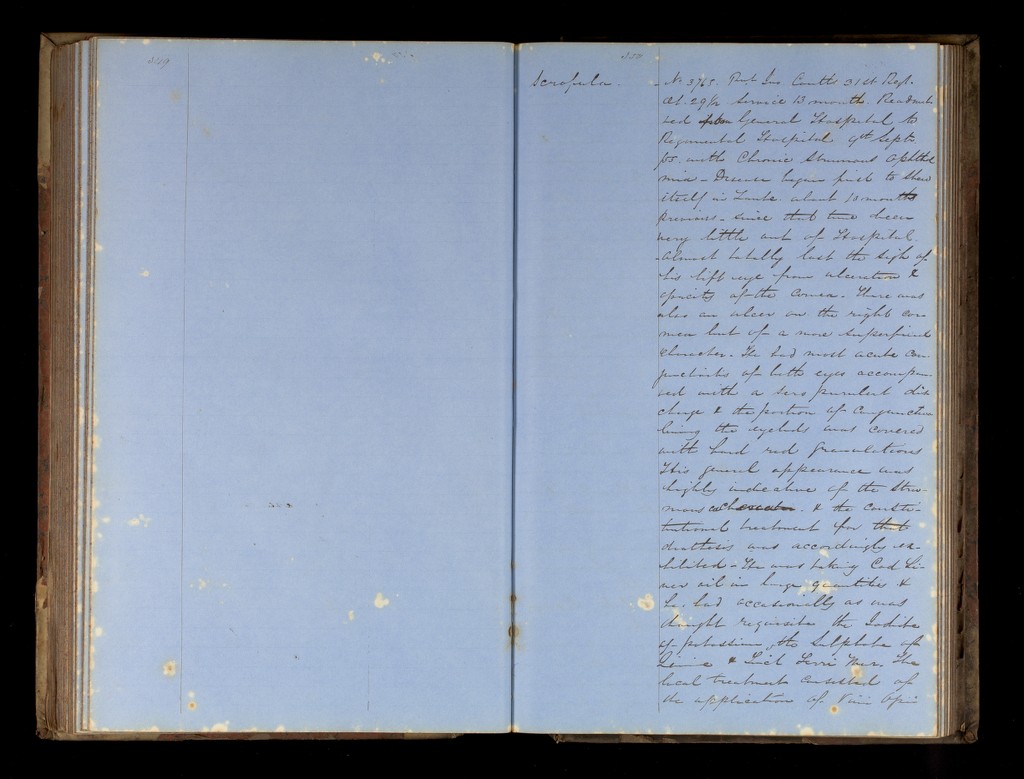 349
350
Scrofula.
- No 3765. Pvt Jno Coutts 31st Regt.
Æt. 29½ Service 13 months. Readmit
ted from General Hospital to
Regimental Hospital 9th Septr
/55. with Chronic Strumous Ophthal
mia - Disease began first to shew
itself in about 10 months
previous - since that time been
very little out of Hospital.
Almost totally lost the sight of
his left eye from ulceration &
opacity of the Cornea. There was
also an ulcer on the right cor-
nea but of a more superficial
character. He had most acute con-
junctivitis of both eyes accompan-
ied with a sero purulent dis
charge & the portion of Conjunctiva
lining the eyelids was covered
with hard red Granulations
His general appearance was
highly indicative of the Stru-
mous & the consti-
tutional treatment for that
diathesis was accordingly ex-
hibited - He was taking Cod Li-
ver oil in large quantities &
he had occasionally as was
thought requisite the Iodide
of potassium, the Sulphate of
Quinine & Ferri Mur. The
local treatment consisted of
the application of Vini Opii